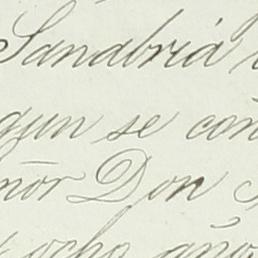 Sanabria
gun se con
ñor Don
ocho años